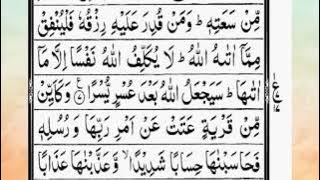 مِّنْ سَعَتِهٖ ؕ وَمَنْ قُدِرَ عَلَيْهِ رِزْقُهٗ فَلْيُنْفِقْ
مِمَّاۤ اٰتٰىهُ اللّٰهُ ؕ لَا يُكَلِّفُ اللّٰهُ نَفْسًا اِلَّا مَاۤ
اٰتٰىهَا ؕ سَيَجْعَلُ اللّٰهُ بَعْدَ عُسْرٍ يُّسْرًا ۟ وَكَاَيِّنْ
مِّنْ قَرْيَةٍ عَتَتْ عَنْ اَمْرِ رَبِّهَا وَرُسُلِهٖ
فَحَاسَبْنٰهَا حِسَابًا شَدِيْدًا ۙ وَّعَذَّبْنٰهَا عَذَابًا